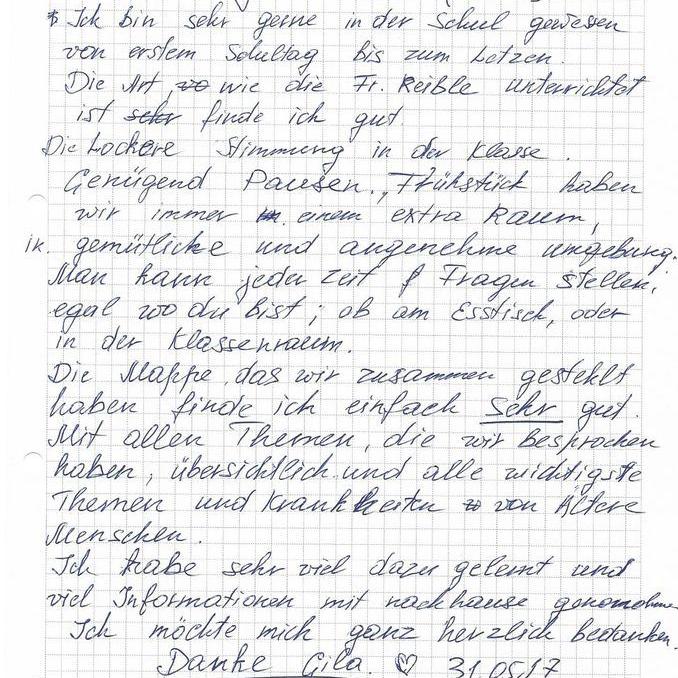 Ich bin sehr gerne in der Schul gewesen
von erstem Schultag bis zum Letzen.
Die Art, wo wie die Fr. Reible unterrichtet
ist sehr finde ich gut.
Die Lockere Stimmung in der Klasse.
Genügend Pausen. Frühstück haben
wir immer in einem extra Raum,
in gemütliche und angenehme umgebung.
Man kann jeder Zeit Fragen stellen,
egal wo du bist; ob am Esstisch, oder
in der Klassenraum.
Die Mappe, das wir zusammen gestehlt
haben finde ich einfach Sehr gut.
Mit allen Themen, die wir besprochen
haben, übersichtlich und alle wichtigste
Themen und Krankheiten von Ältere
Menschen.
Ich habe sehr viel dazu gelernt und
viel Informationen mit nachhause genommen.
Ich möchte mich ganz herzlich bedanken.
Danke Gila. ♡ 31.05.17